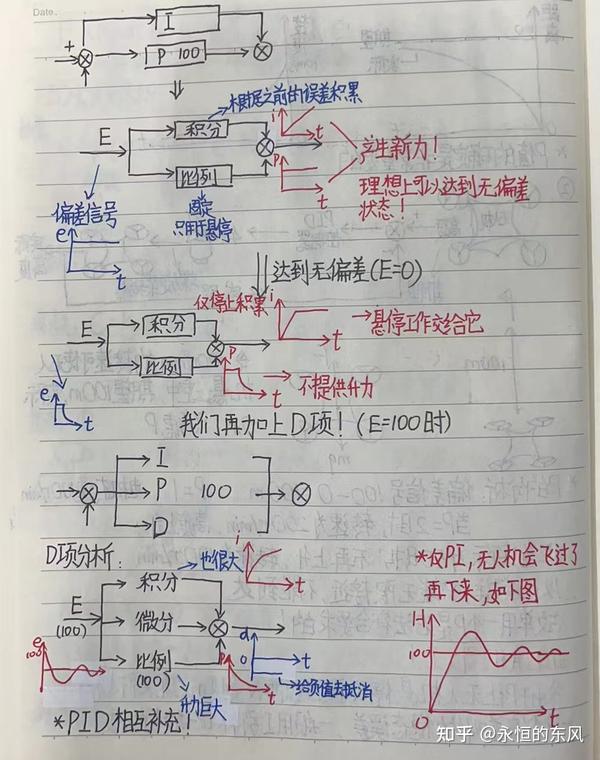 Date.
I
+
P 100
⇓
根据之前的误差积累
i
t
E
积分
产生新力！
P
t
比例
理想上可以达到无偏差
状态！
偏差信号
固定
只用于悬停
e
t
达到无偏差(E=0)
仅停止积累
i
t
→悬停工作交给它
E
积分
比例
P
t
→不提供升力
e
t
我们再加上D项！(E=100时)
I
P 100
D
D项分析：
也很大
i
t
*仅PI，无人机会飞过了
再下来，如下图
E
(100)
积分
微分
比例
(100)
e
100
t
d
0
t
P
t
给负值去抵消
升力巨大
H
100
0
t
*PID相互补充！
知乎 @永恒的东风